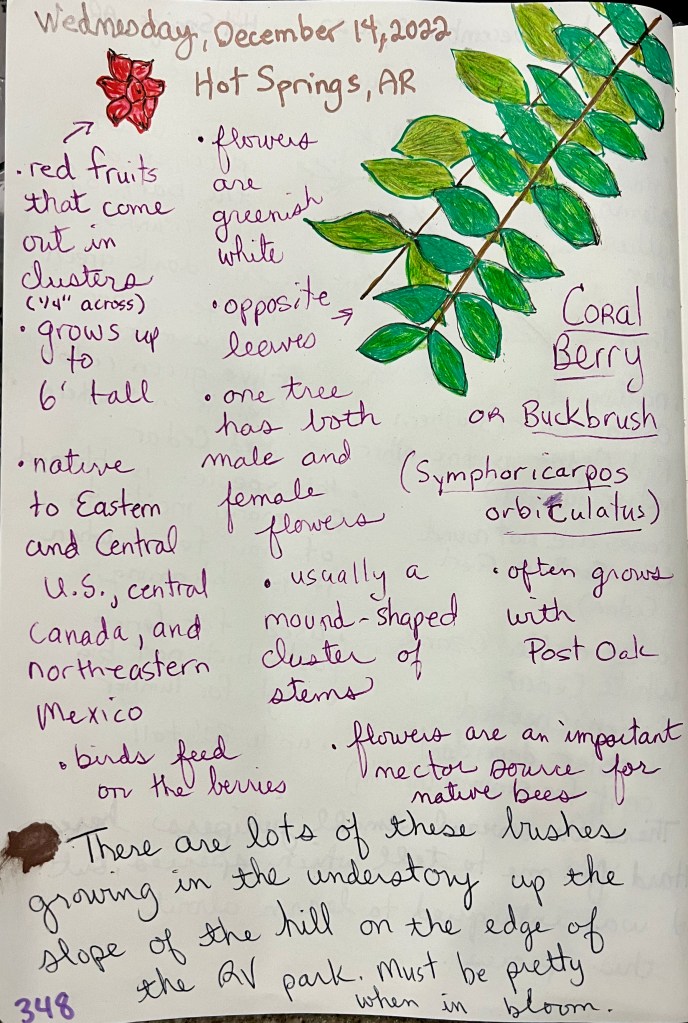 Wednesday, December 14, 2022
Hot Springs, AR
• red fruits
that come
out in
clusters
(1/4" across)
• grows up
to
6' tall
• native
to Eastern
and Central
U.S., central
Canada, and
northeastern
Mexico
• birds feed
on the berries
• flowers
are
greenish
white
• opposite
leaves
• one tree
has both
male and
female
flowers
• usually a
mound-shaped
cluster of
stems
Coral
Berry
or Buckbrush
(Symphoricarpos
orbiculatus)
• often grows
with
Post Oak
• flowers are an important
nector source for
native bees
There are lots of these bushes
growing in the understory up the
slope of the hill on the edge of
the RV park. Must be pretty
when in bloom.
348